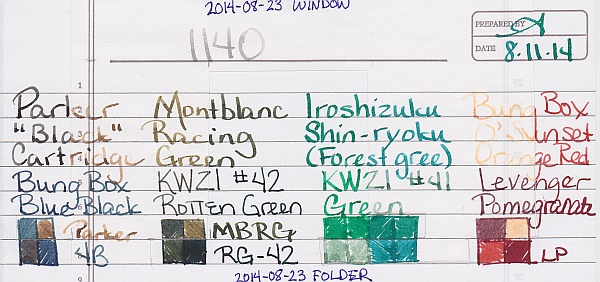 2014-08-23 WINDOW
1140
PREPARED BY
DATE 8.11.14
Parker Montblanc Iroshizuku Bung Box
"Black" Racing Shin-ryoku O'Sunset
Cartridge Green (Forest gree) Orange Red
Bung Box KWZI #42 KWZI #41 Levenger
Blue Black Rotten Green Green Pomegranate
Parker MBRG
4B RG-42 LP
2014-08-23 FOLDER